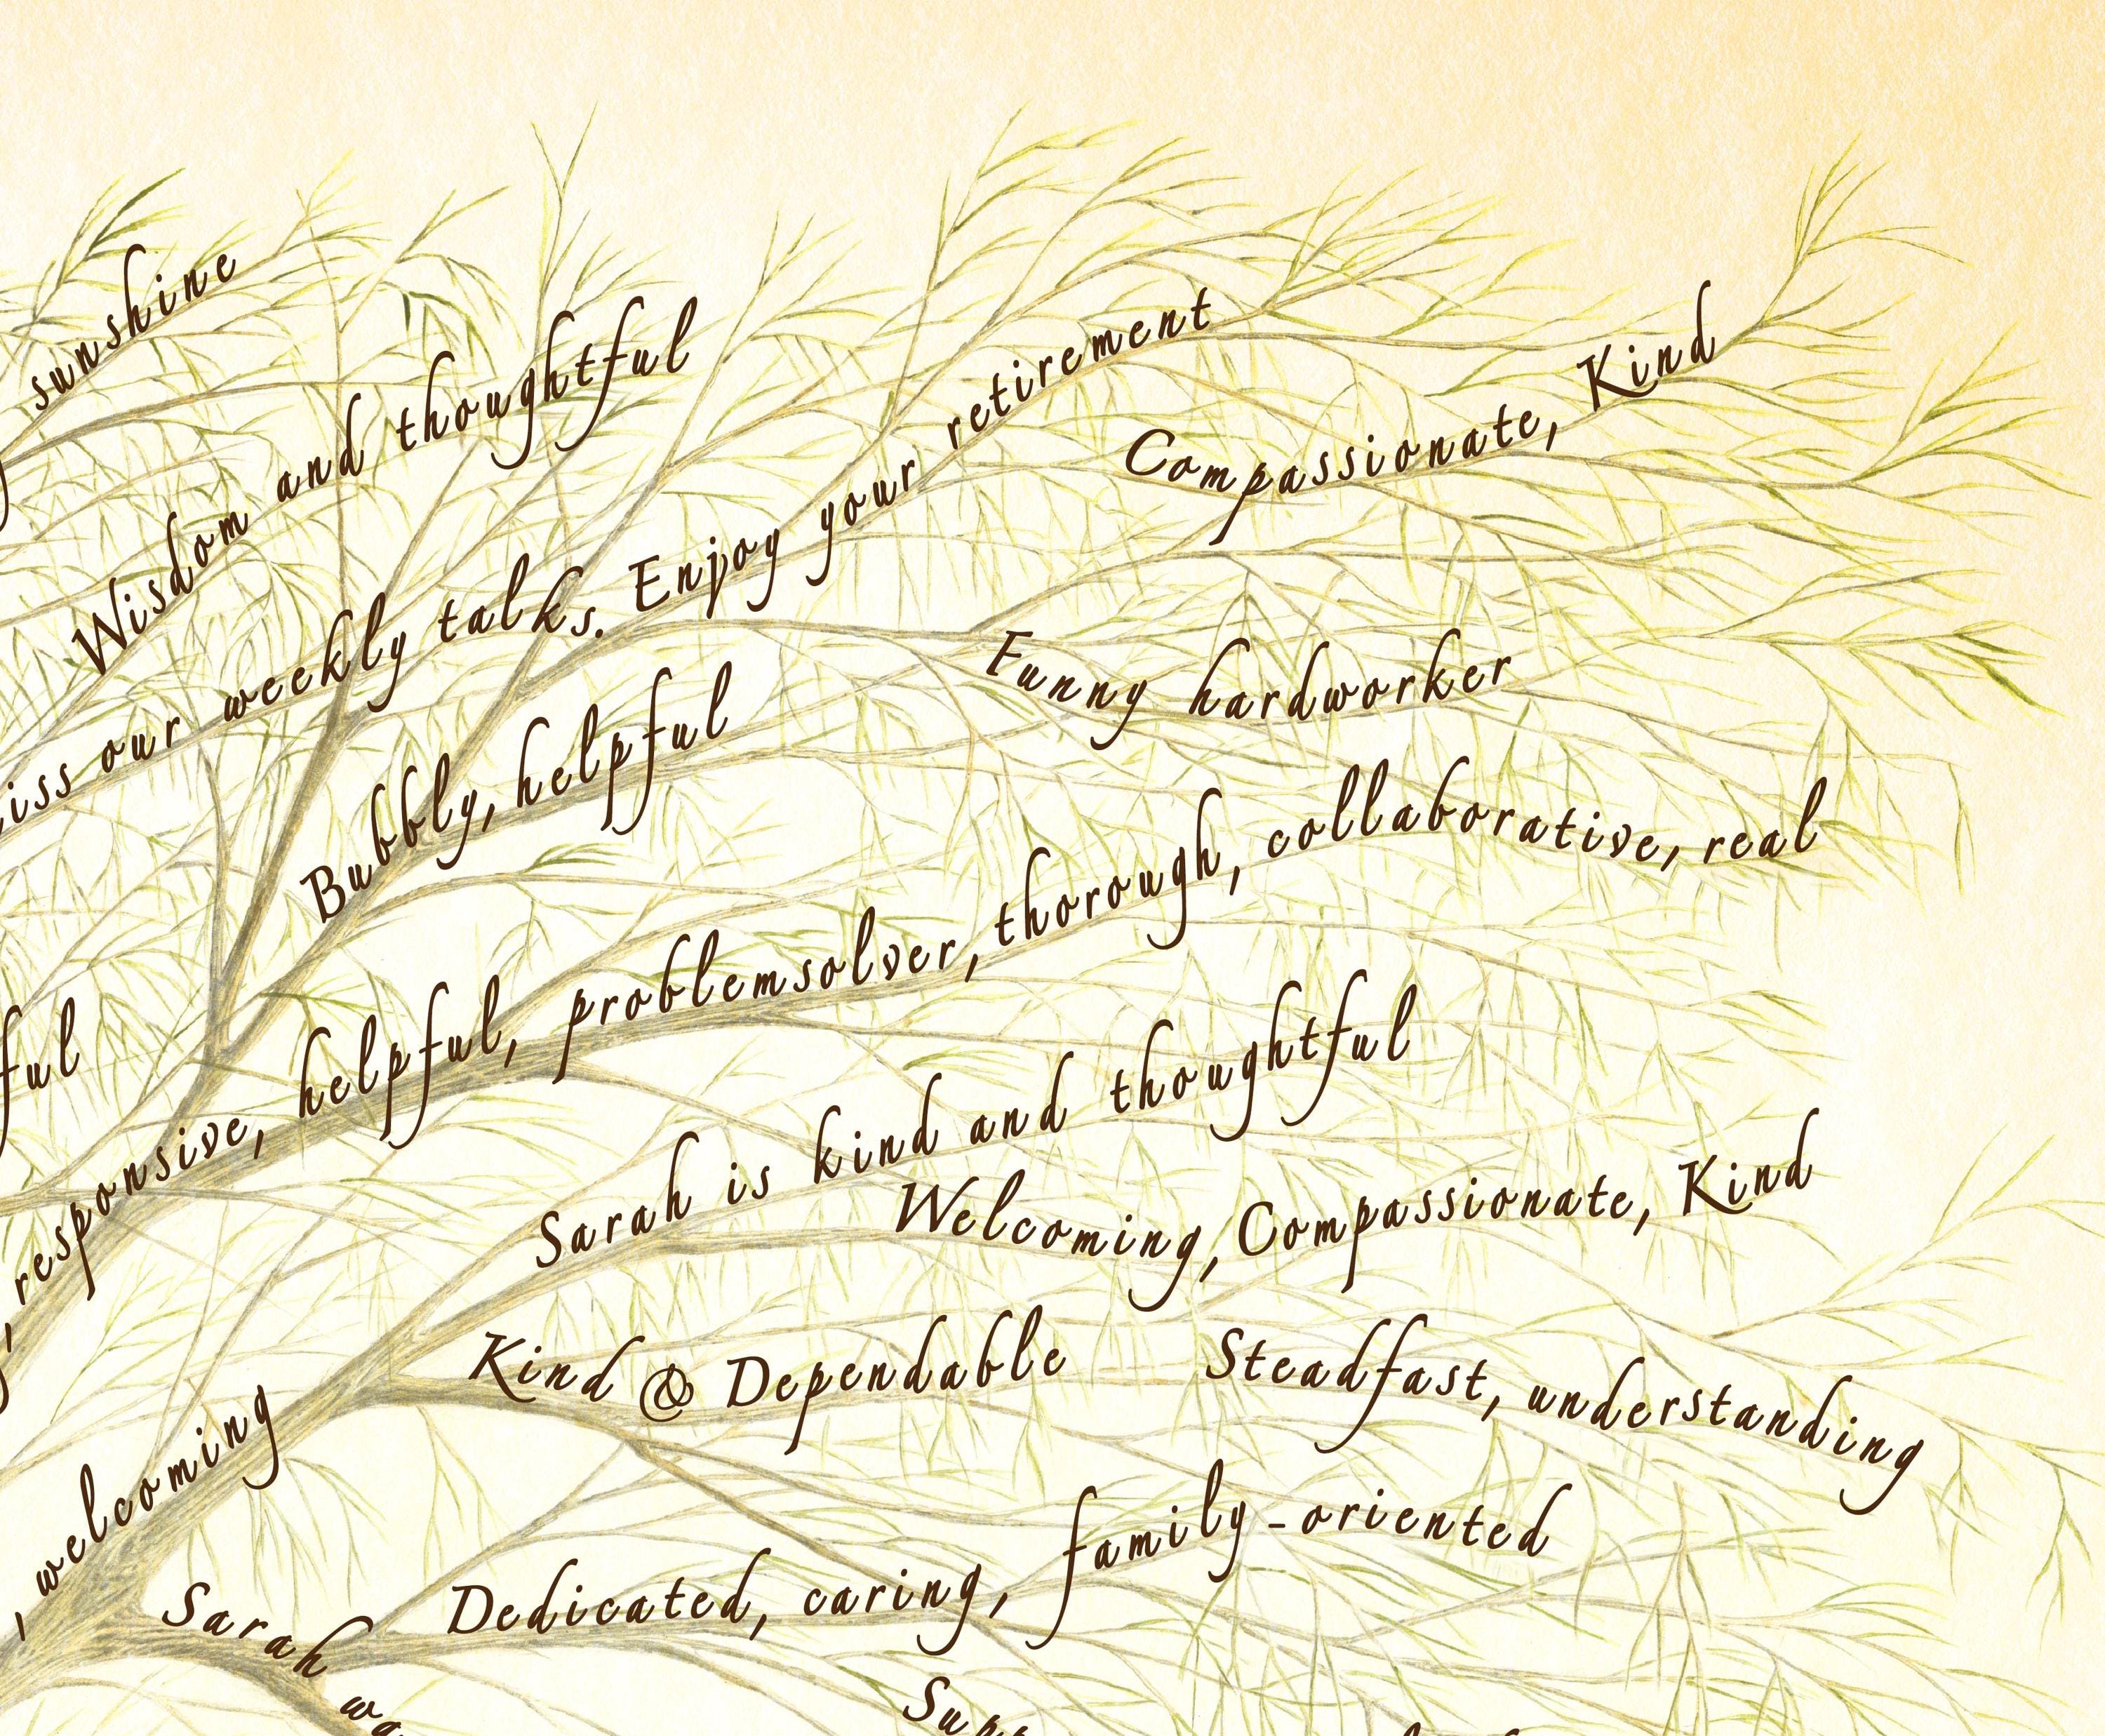 sunshine
Wisdom and thoughtful
iss our weekly talks. Enjoy your retirement
Compassionate, Kind
Funny hardworker
Bubbly, helpful
responsive, helpful, problemsolver, thorough, collaborative, real
ful
Sarah is kind and thoughtful
Welcoming, Compassionate, Kind
Kind & Dependable
Steadfast, understanding
, welcoming
Dedicated, caring, family-oriented
Sarah wa